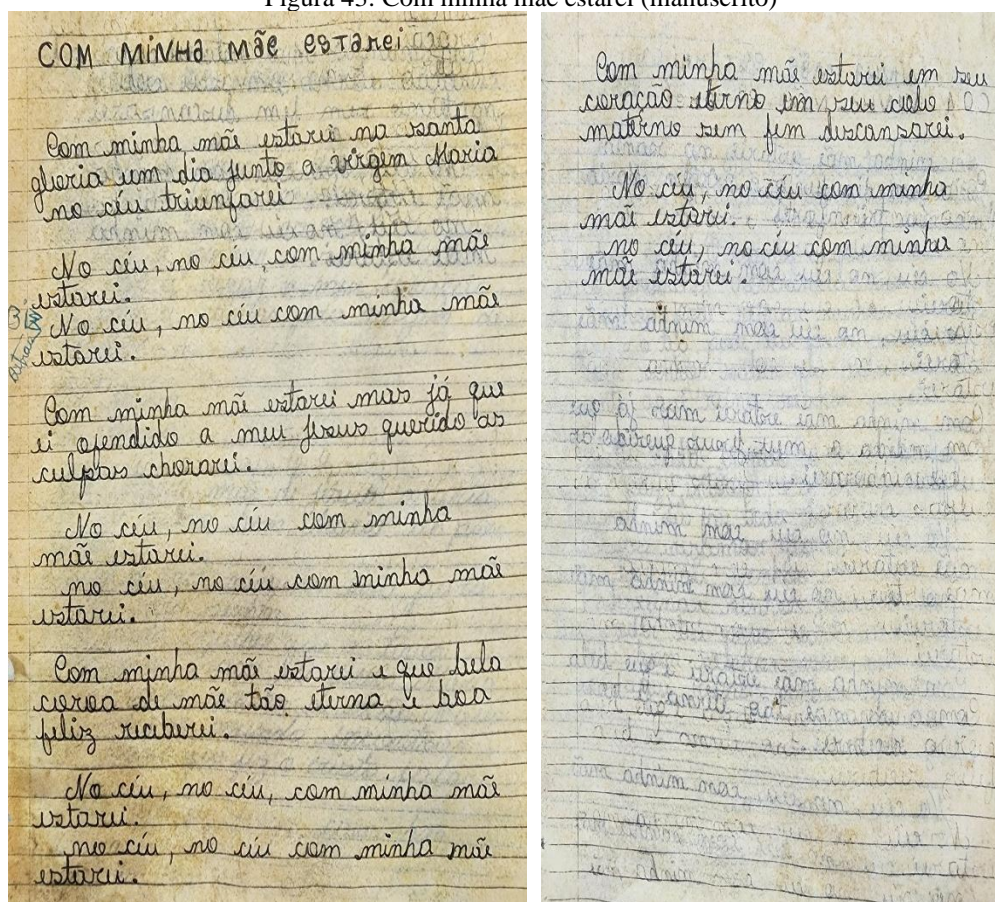 Figura 43: Com minha mãe estarei (manuscrito)
COM MINHA Mãe esTarei
Com minha mãe estarei na santa
gloria um dia junto a virgem Maria
no céu triunfarei.
No céu, no céu, com minha mãe
estarei.
No céu, no céu com minha mãe
estarei.
Com minha mãe estarei mas já que
ei ofendido a meu Jesus querido as
culpas chorarei.
No céu, no céu com minha
mãe estarei.
no céu, no céu com minha mãe
estarei.
Com minha mãe estarei e que bela
coroa de mãe tão eterna e boa
feliz receberei.
No céu, no céu, com minha mãe
estarei.
no céu, no céu com minha mãe
estarei.
Com minha mãe estarei em seu
coração eterno em seu colo
materno sem fim descansarei.
No céu, no céu com minha
mãe estarei.
no céu, no céu com minha
mãe estarei.